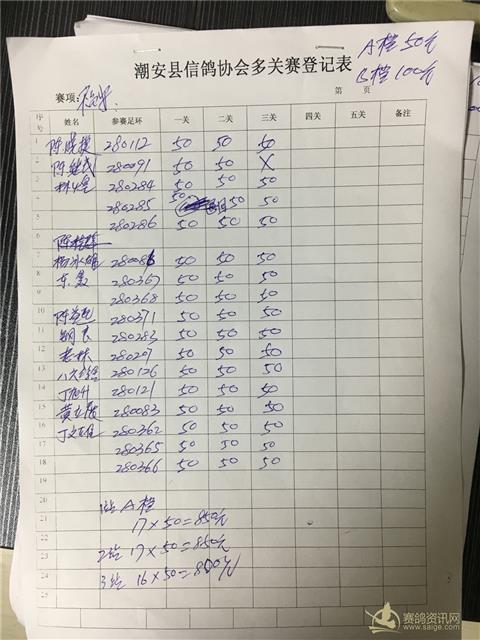 潮安县信鸽协会多关赛登记表
A档 50元
B档 100元
赛项:
第 页
序号 姓名 参赛足环 一关 二关 三关 四关 五关 备注
1 280112 50 50 50
2 280091 50 50 X
3 280284 50 50 50
4 280285 50 50 50
5 280286 50 50 50
6
7 280086 50 50 50
8 280367 50 50 50
9 280368 50 50 50
10 280371 50 50 50
11 280283 50 50 50
12 280207 50 50 50
13 280126 50 50 50
14 280121 50 50 50
15 280083 50 50 50
16 280362 50 50 50
17 280365 50 50 50
18 280366 50 50 50
19
20
21 1站 A档
22 17×50=850元
23 2站 17×50=850元
24 3站 16×50=800元
25
赛鸽资讯网
www.saige.com